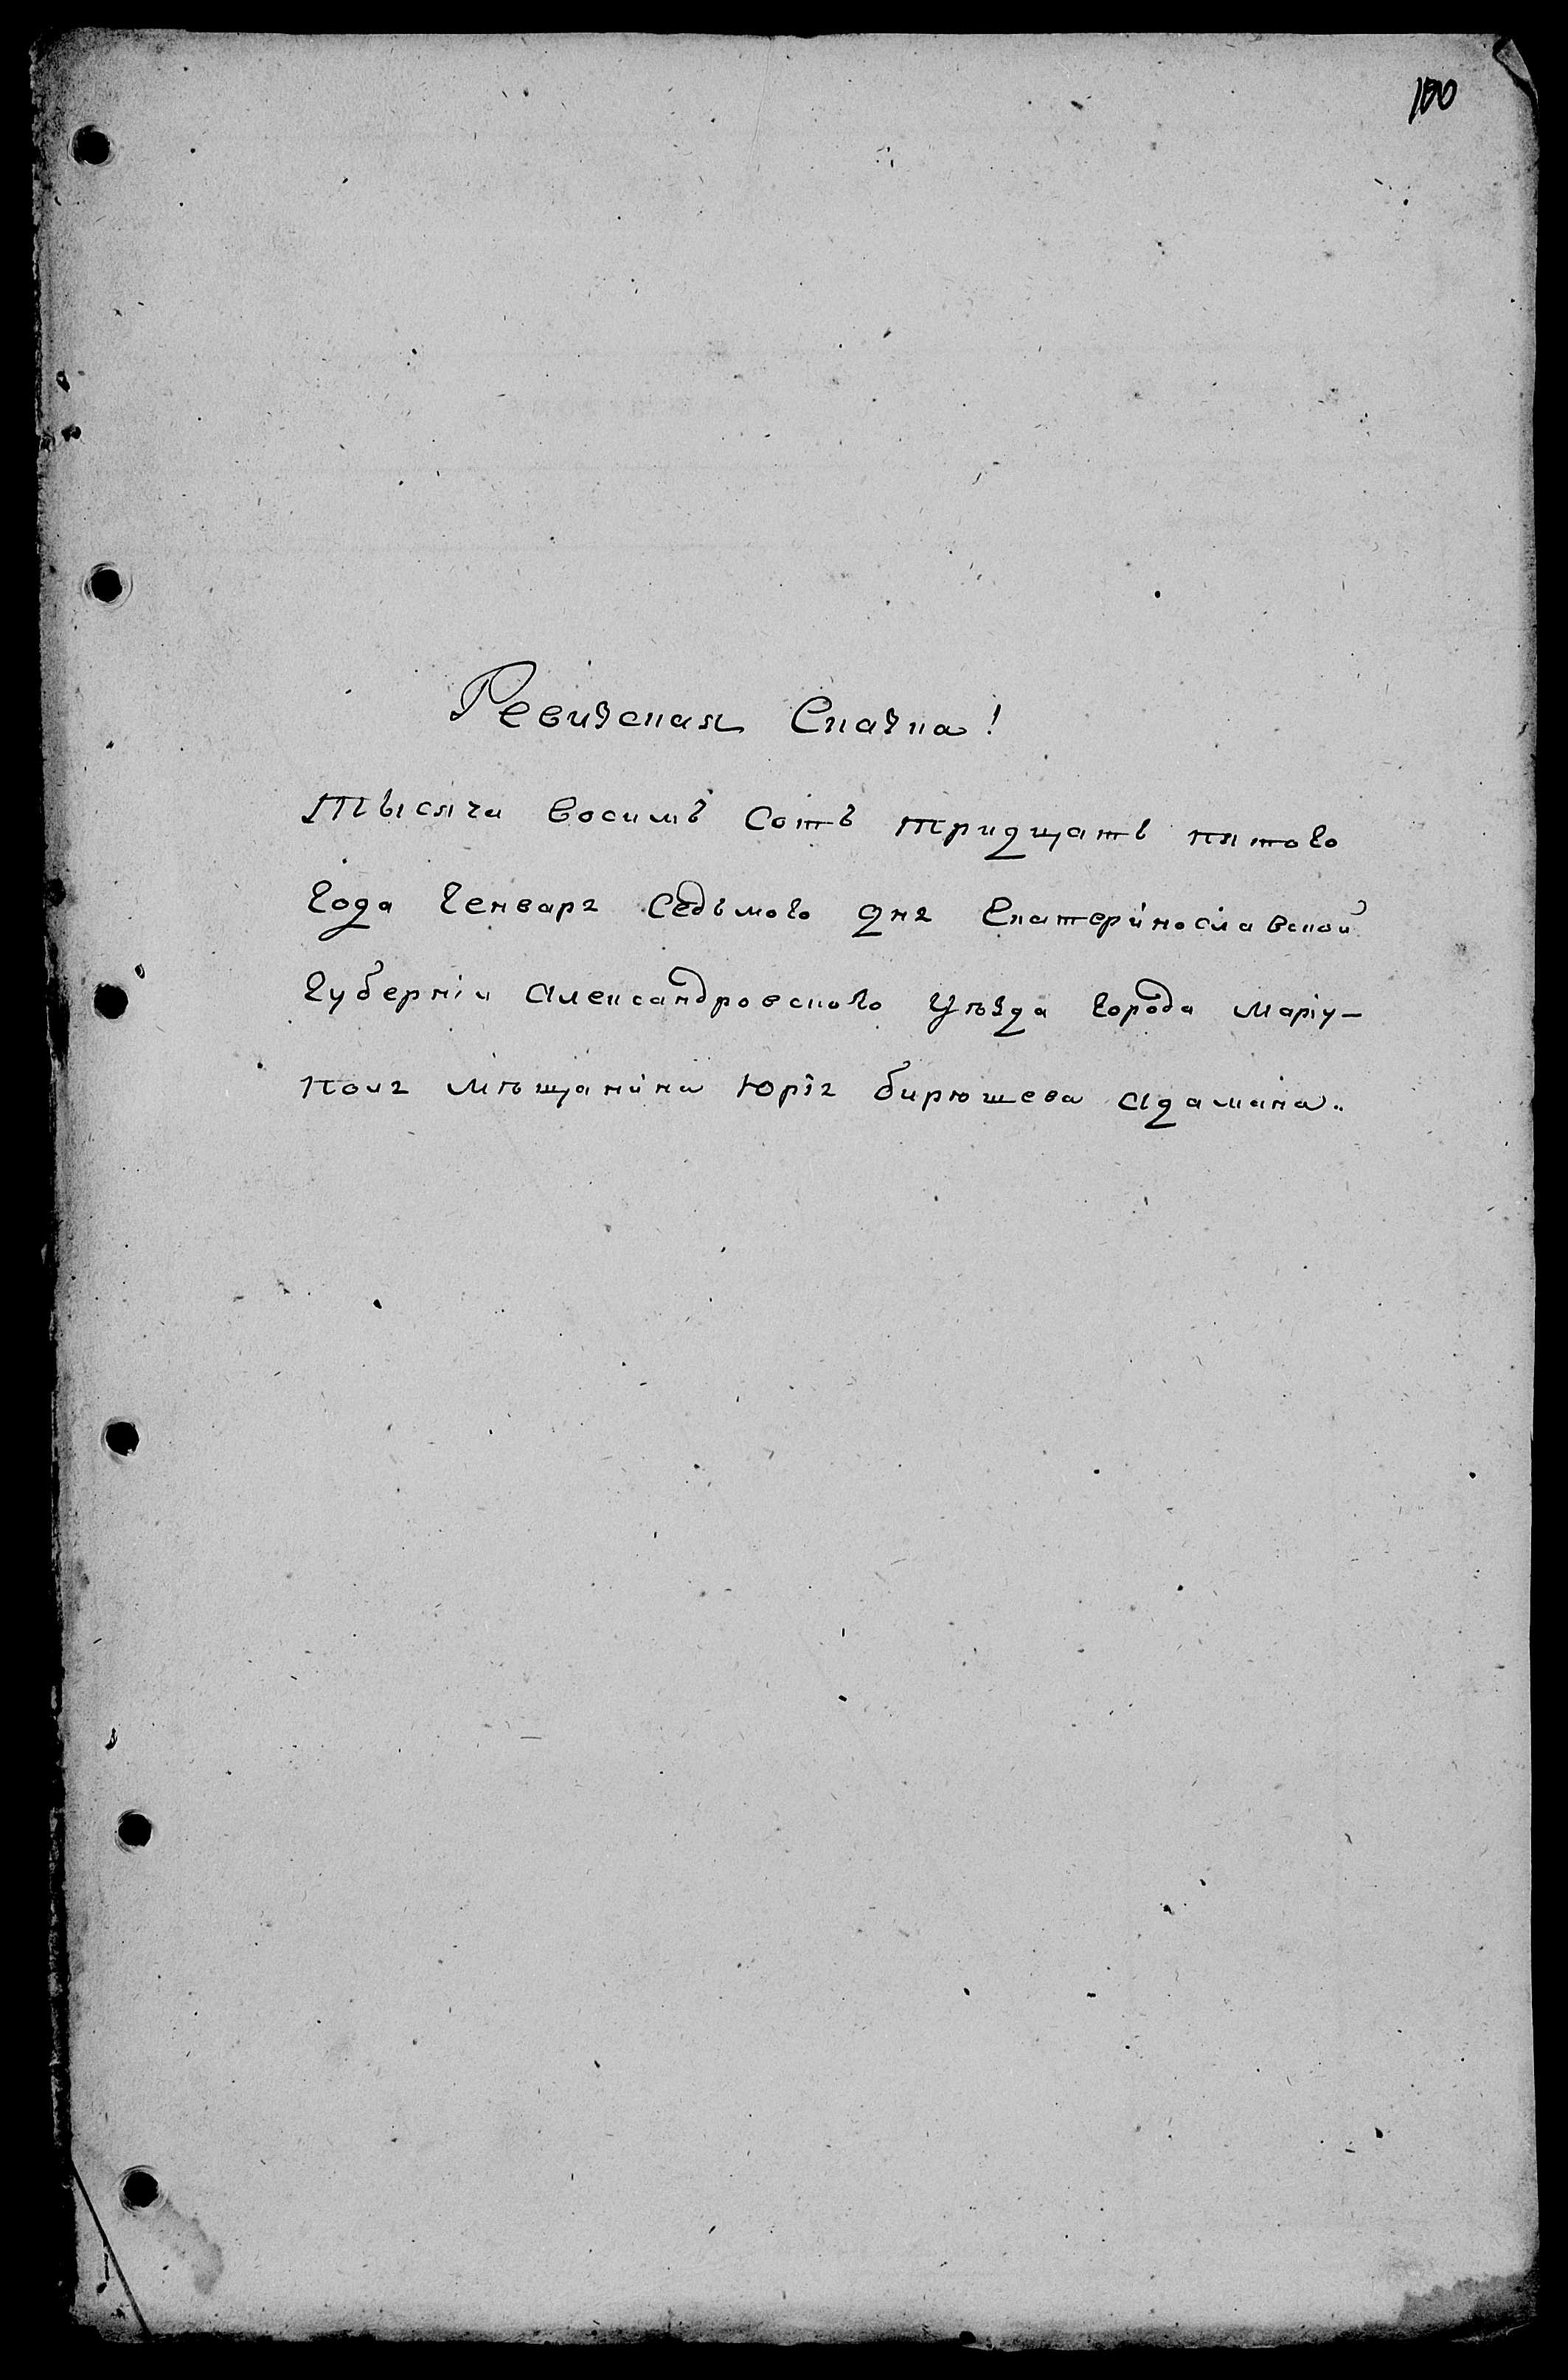 100
Ревизская Сказка!
Тысяча восимъ Сотъ тридцать пятого
года Генваря Седьмого дня Екатеринославской
Губерніи Александровского Уѣзда города Маріу-
поля мѣщанина Юрія бирюшева адамана.